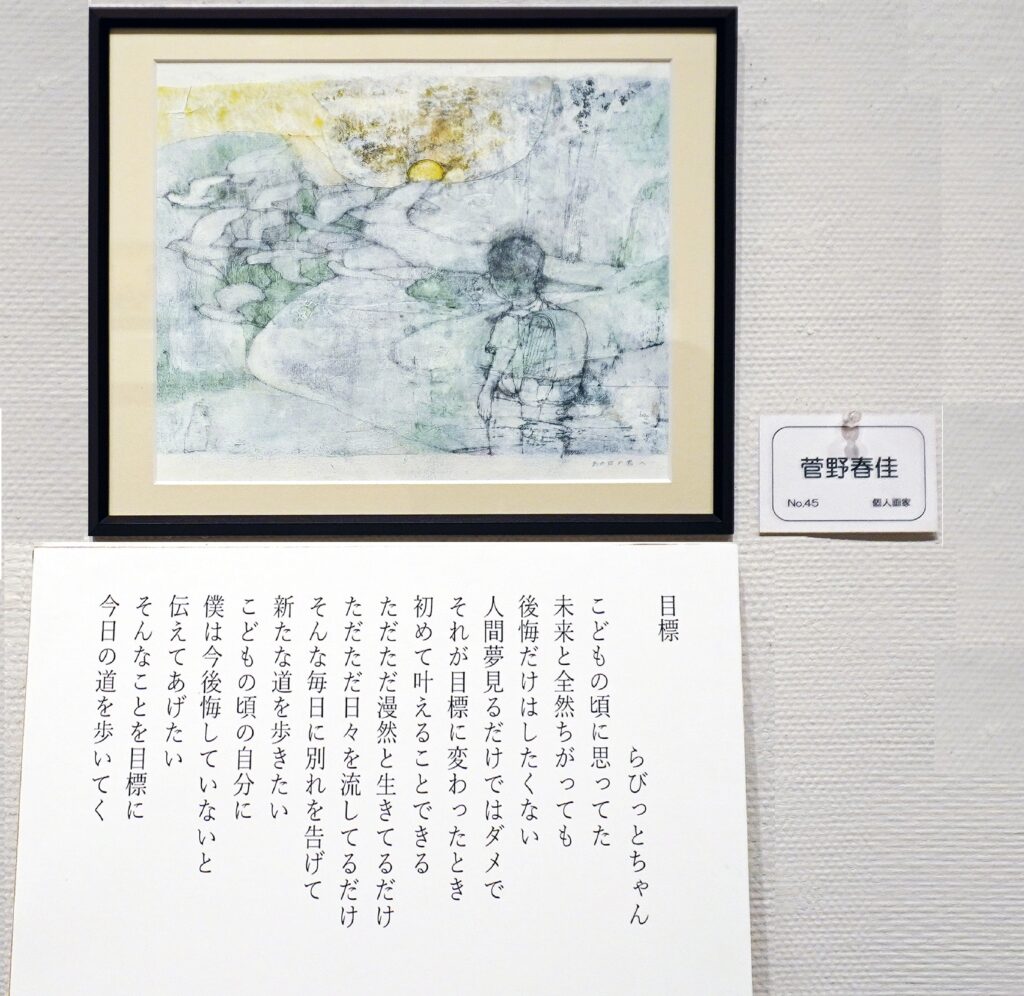 あの日の君へ
菅野春佳
No.45 個人画家
目標
らびっとちゃん
こどもの頃に思ってた
未来と全然ちがっても
後悔だけはしたくない
人間夢見るだけではダメで
それが目標に変わったとき
初めて叶えることできる
ただただ漫然と生きてるだけ
ただただ日々を流してるだけ
そんな毎日に別れを告げて
新たな道を歩きたい
こどもの頃の自分に
僕は今後悔していないと
伝えてあげたい
そんなことを目標に
今日の道を歩いてく